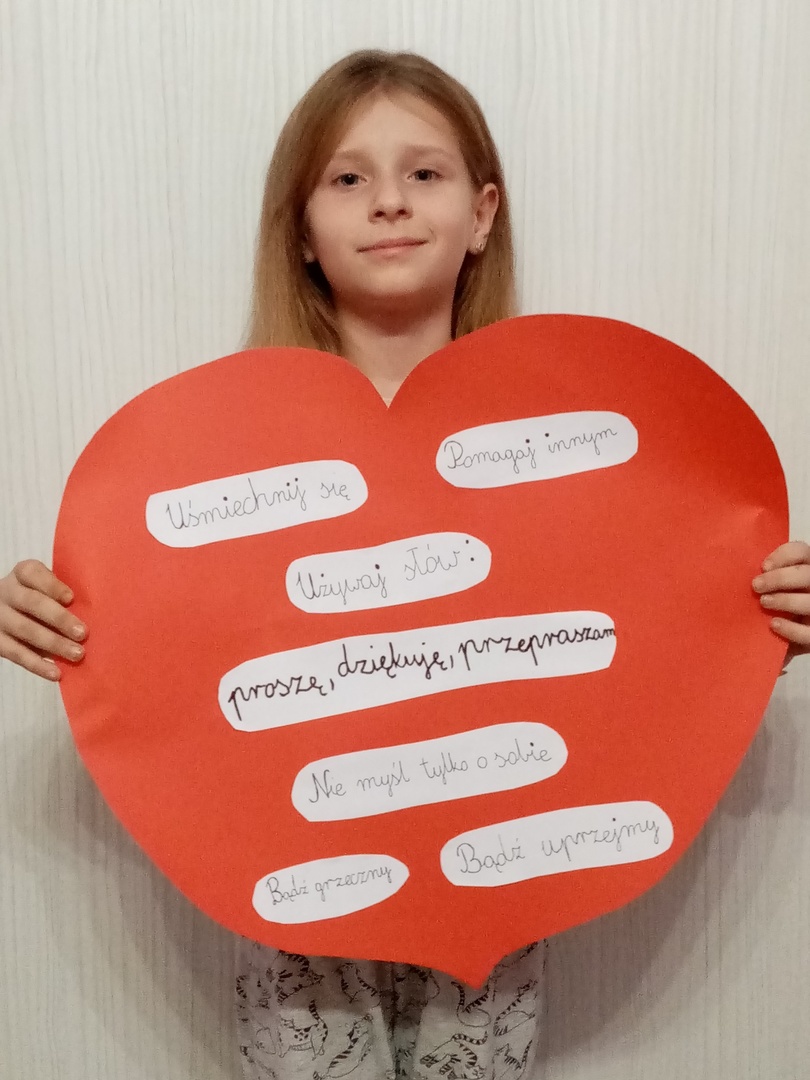 Pomagaj innym
Uśmiechnij się
Używaj słów:
proszę, dziękuję, przepraszam
Nie myśl tylko o sobie
Bądź uprzejmy
Bądź grzeczny